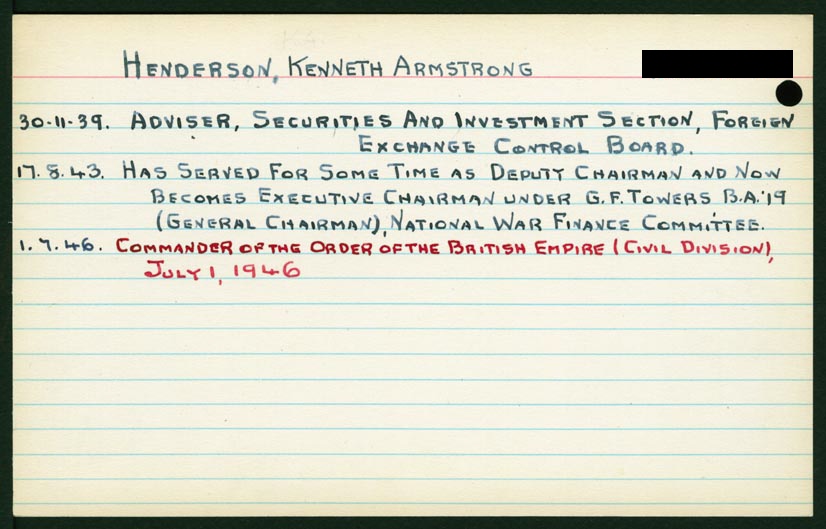 HENDERSON, KENNETH ARMSTRONG
30.11.39. ADVISER, SECURITIES AND INVESTMENT SECTION, FOREIGN
EXCHANGE CONTROL BOARD.
17.8.43. HAS SERVED FOR SOME TIME AS DEPUTY CHAIRMAN AND NOW
BECOMES EXECUTIVE CHAIRMAN UNDER G.F. TOWERS B.A.'19
(GENERAL CHAIRMAN), NATIONAL WAR FINANCE COMMITTEE.
1.7.46. COMMANDER OF THE ORDER OF THE BRITISH EMPIRE (CIVIL DIVISION),
JULY 1, 1946